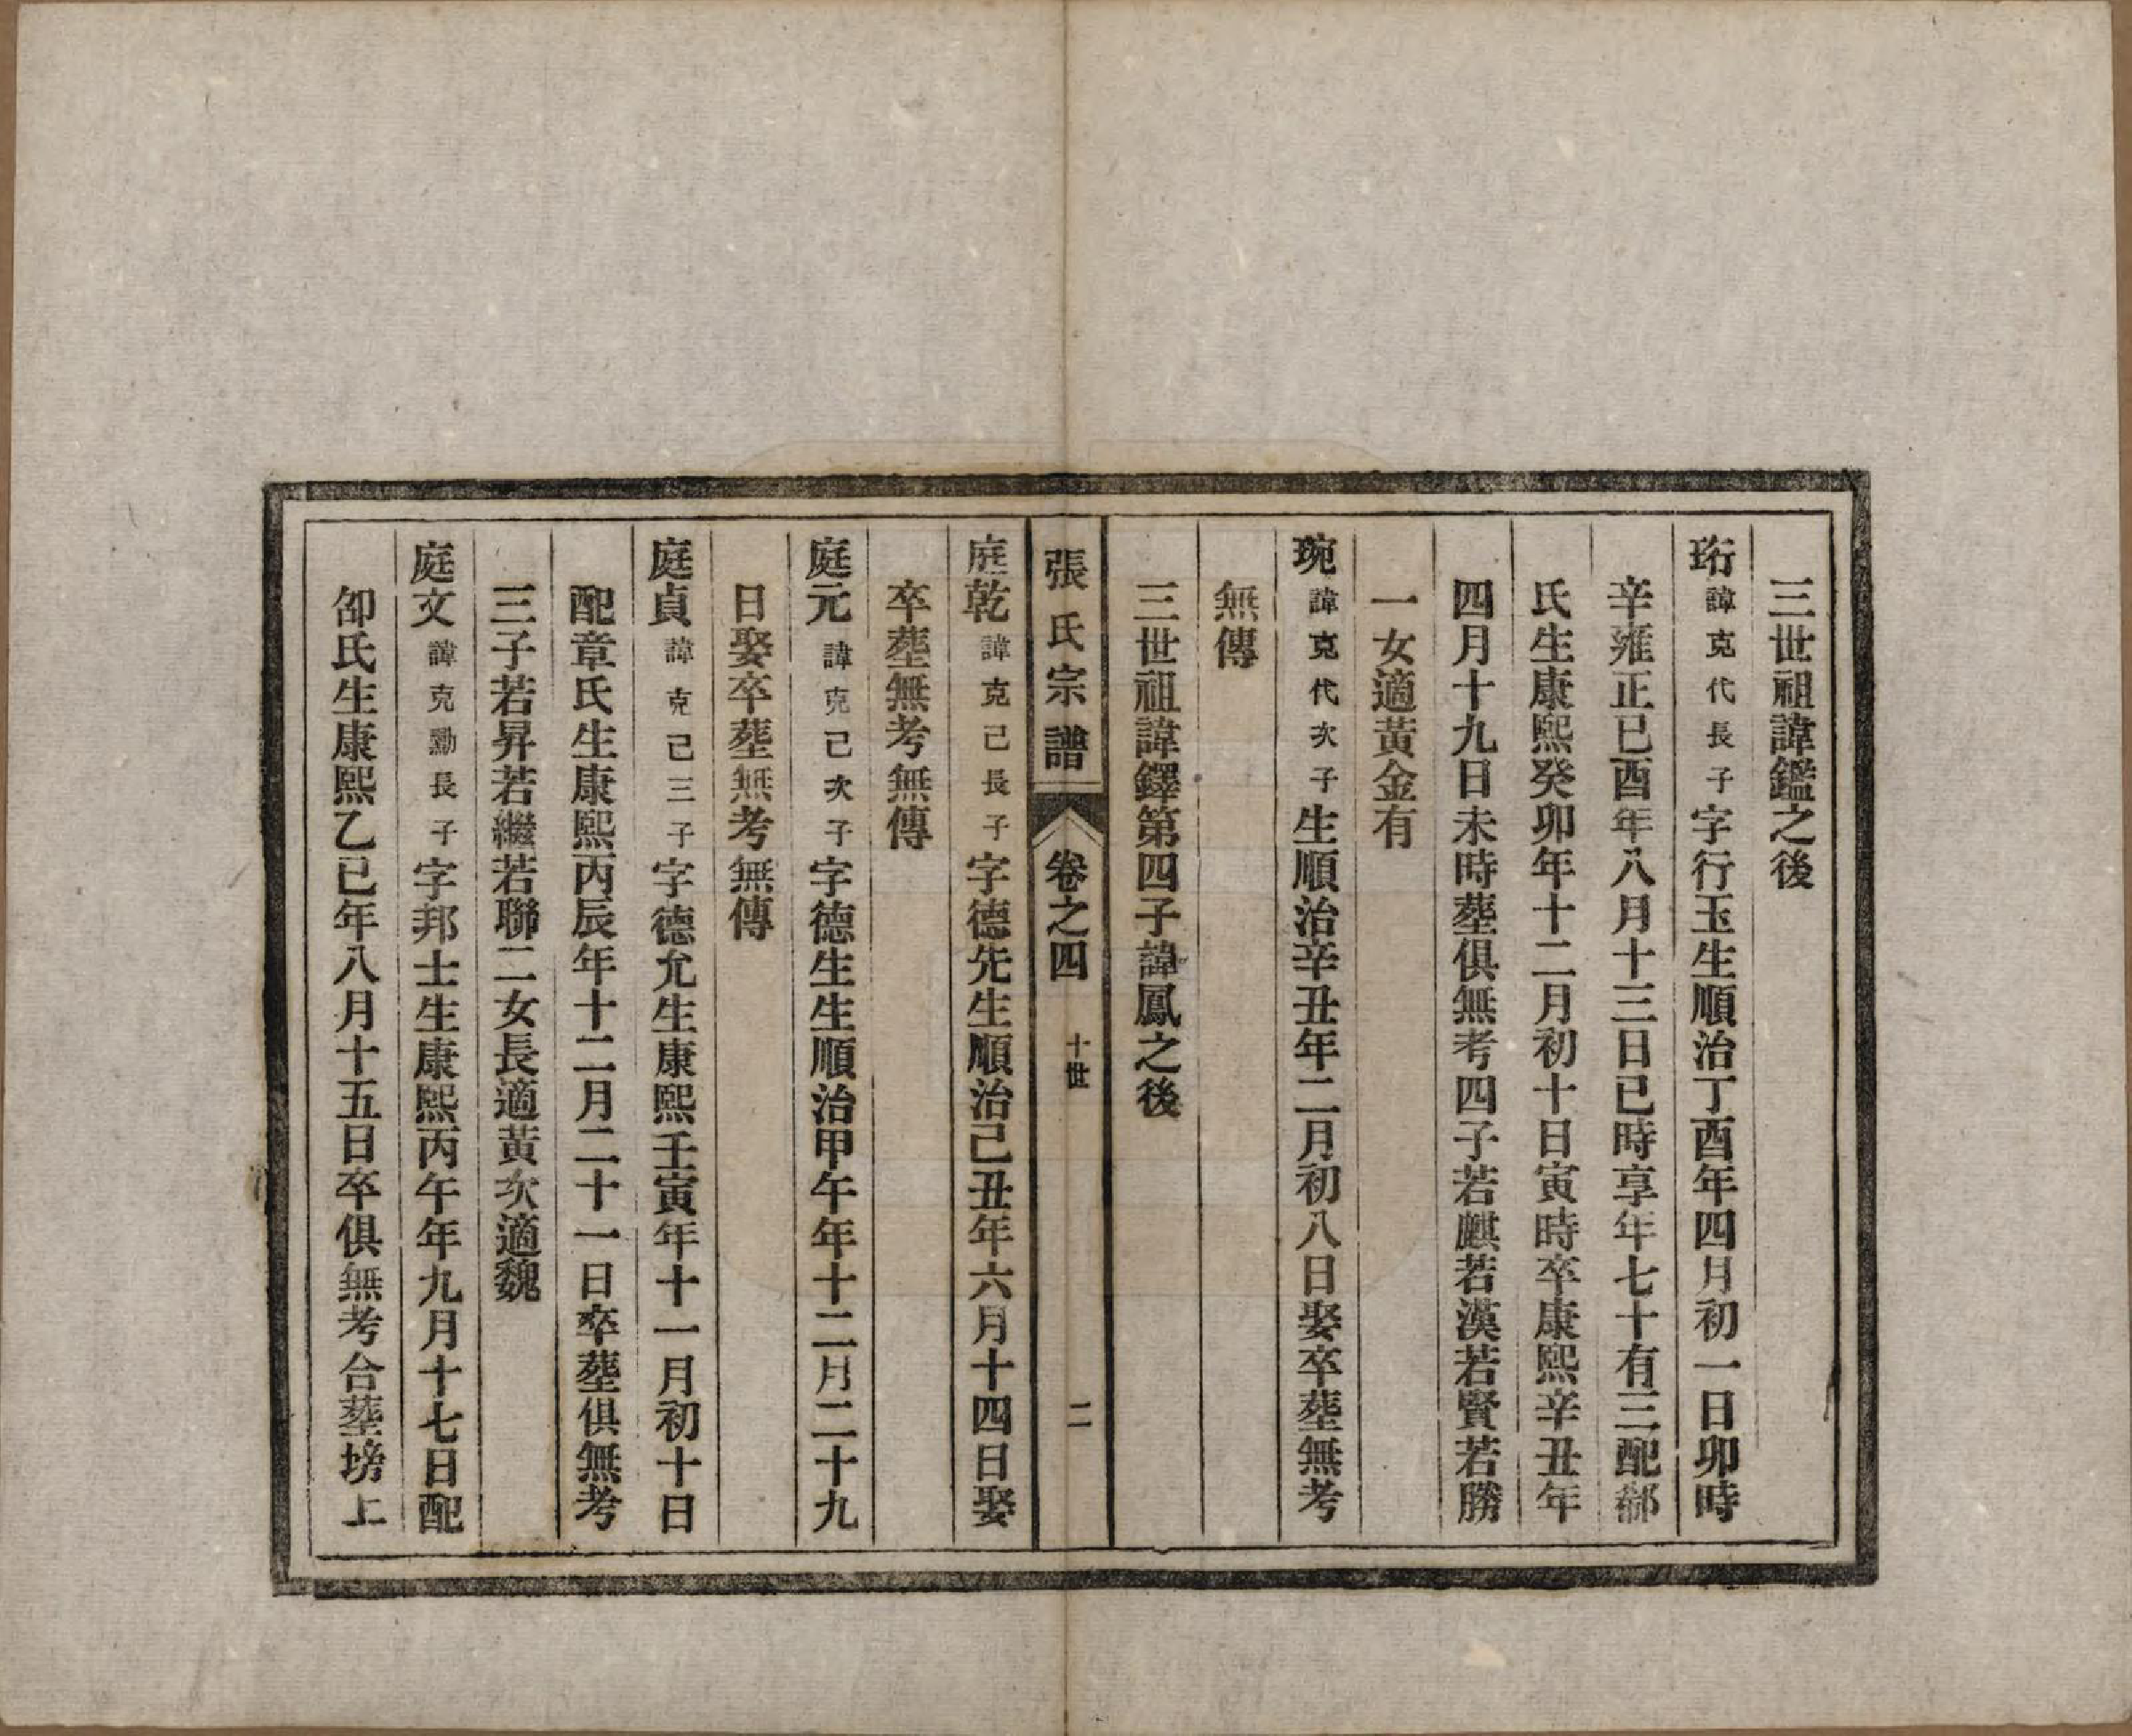 三世祖諱鑑之後
珩諱克代長子字行玉生順治丁酉年四月初一日卯時
辛雍正已酉年八月十三日已時享年七十有三配鄒
氏生康熙癸卯年十二月初十日寅時卒康熙辛丑年
四月十九日未時塟俱無考四子若麒若漢若賢若勝
一女適黃金有
琬諱克代次子生順治辛丑年二月初八日娶卒塟無考
無傳
三世祖諱鐸第四子諱鳳之後
張氏宗譜 卷之四 十世 二
庭乾諱克己長子字德先生順治己丑年六月十四日娶
卒塟無考無傳
庭元諱克己次子字德生生順治甲午年十二月二十九
日娶卒塟無考無傳
庭貞諱克己三子字德允生康熙壬寅年十一月初十日
配章氏生康熙丙辰年十二月二十一日卒塟俱無考
三子若昇若繼若聯二女長適黃次適魏
庭文諱克勵長子字邦士生康熙丙午年九月十七日配
邵氏生康熙乙已年八月十五日卒俱無考合塟塝上